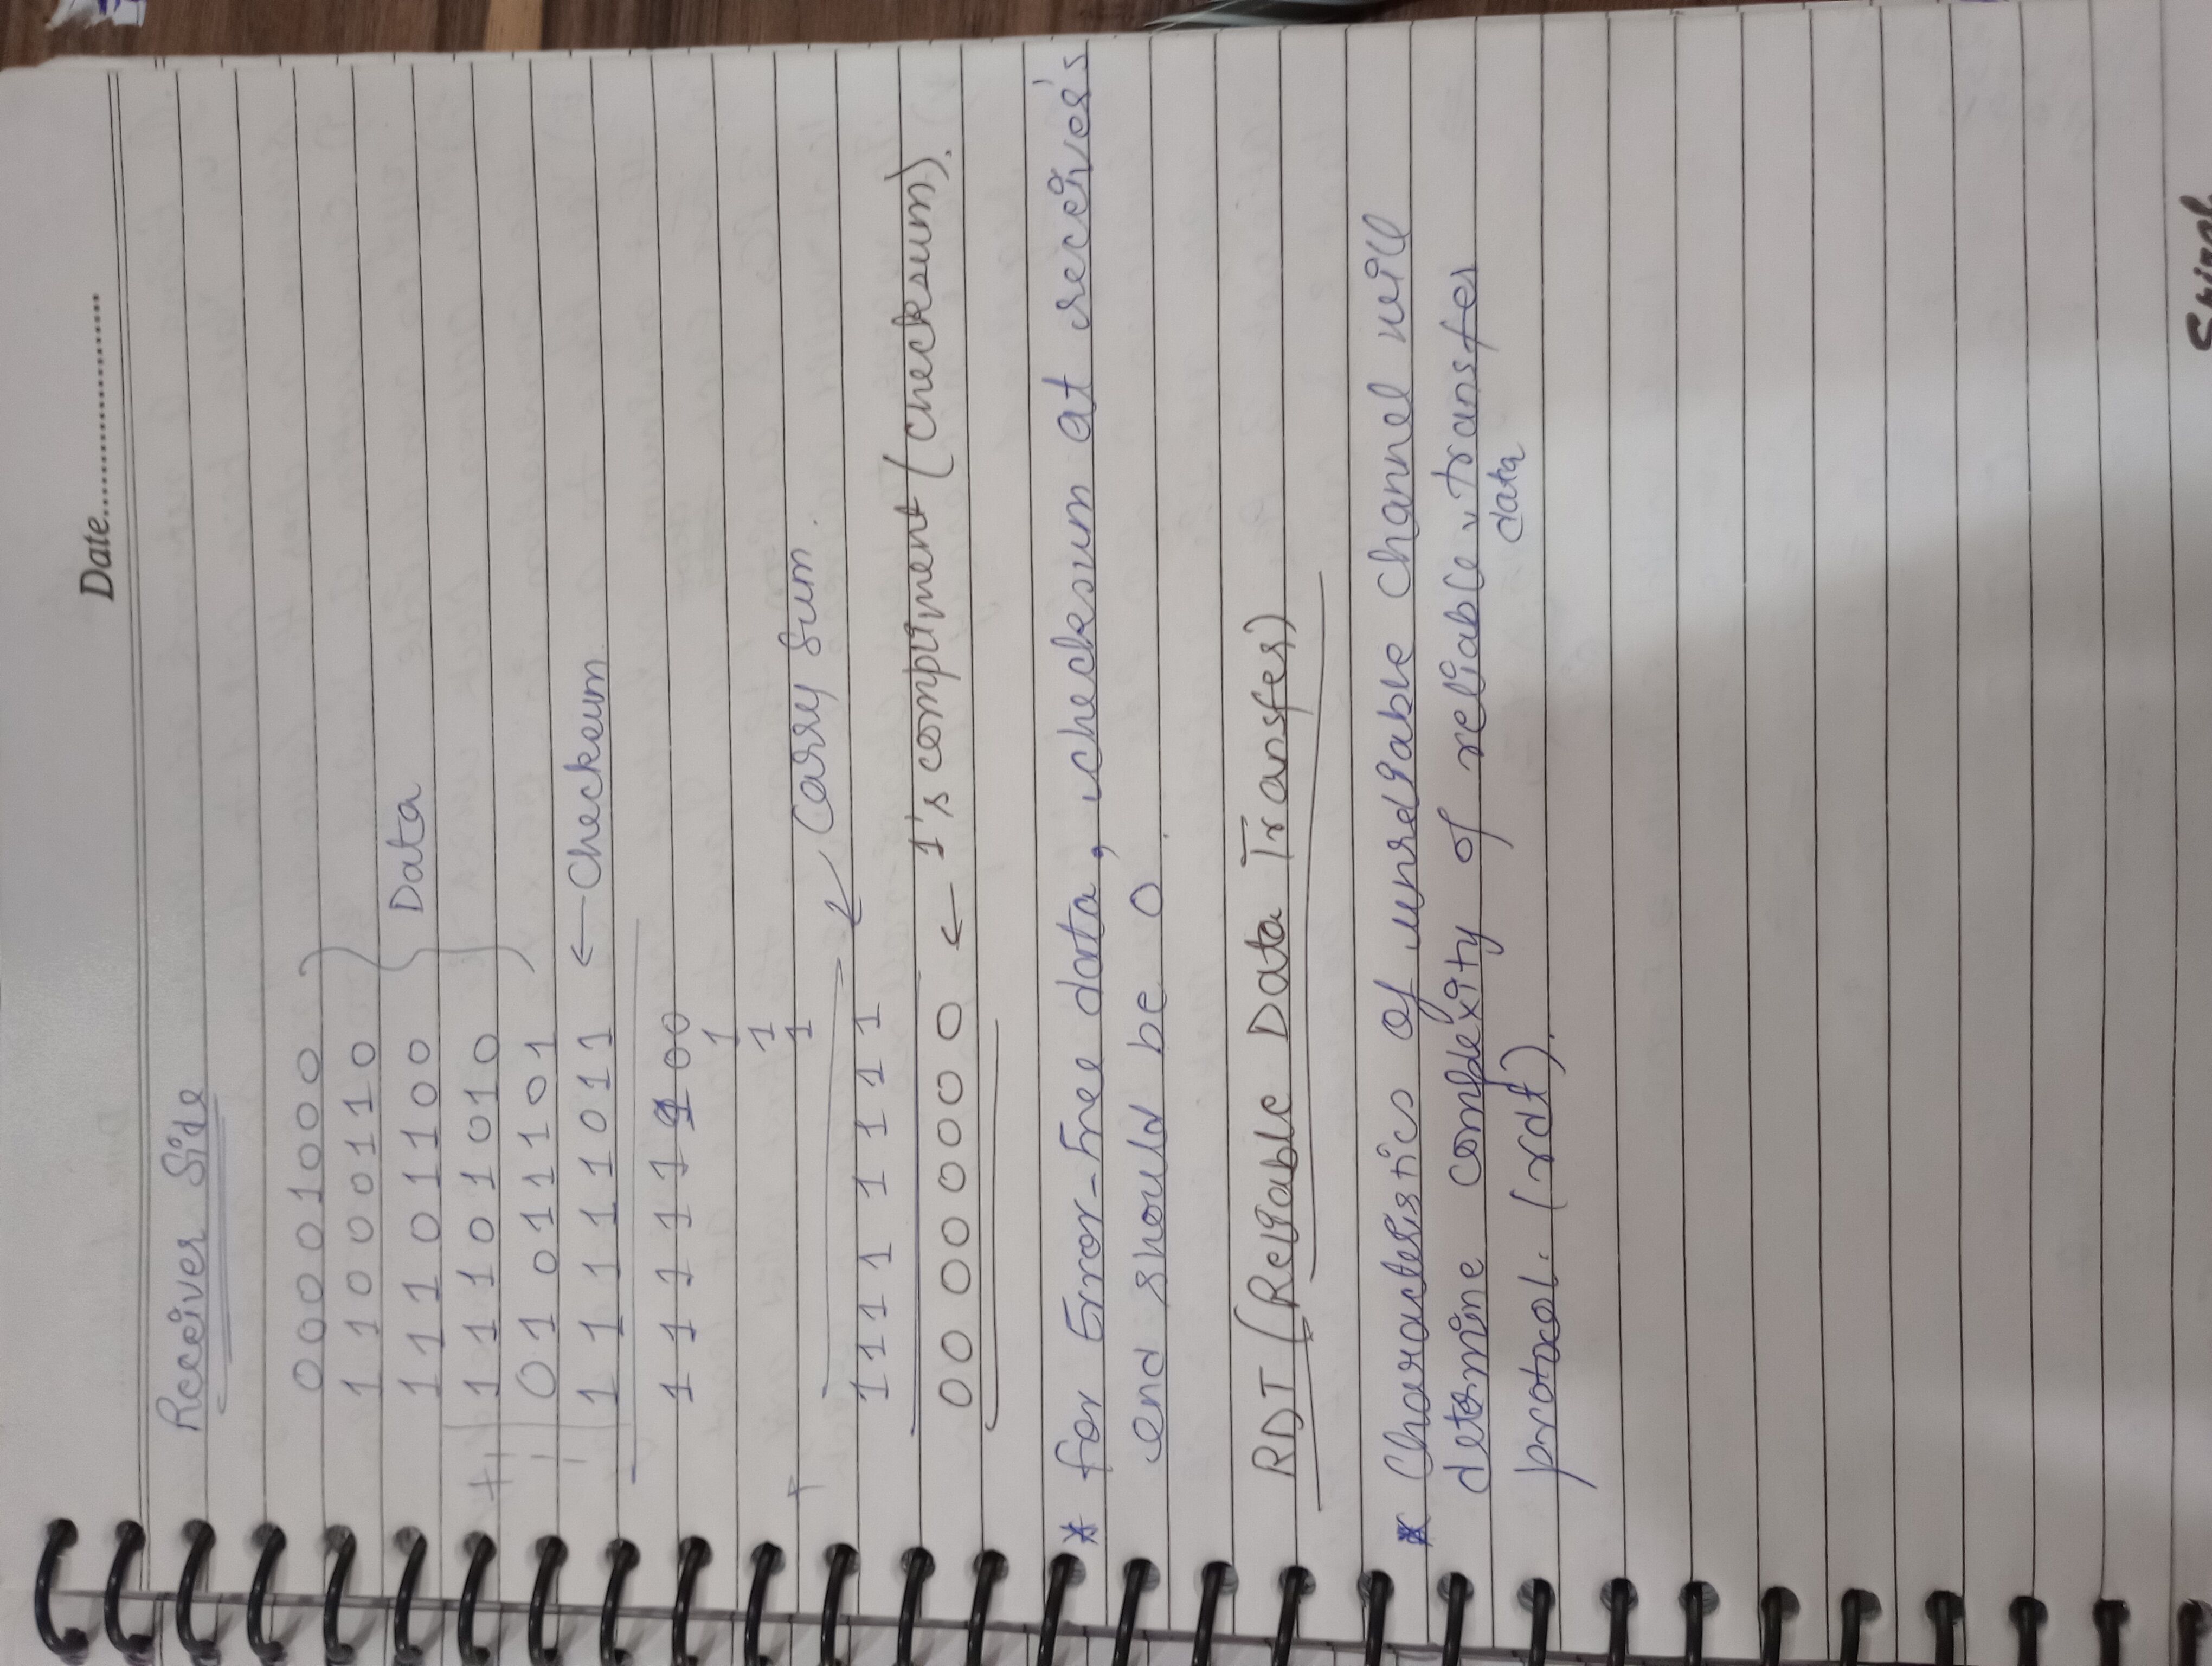 Date......................
Receiver Side
00001000
11000110
11101100
Data
+ 11101010
01011101
11111011 ← Checksum
11111100
1
1
+ 1
Carry Sum.
1111 1111
00 00 0000 ← 1's compliment (checksum).
* for Error-Free data, checksum at receiver's
end should be 0.
RDT (Reliable Data Transfer)
* Characteristics of unreliable channel will
determine complexity of reliable transfer
data
protocol. (rdt).
Spiral